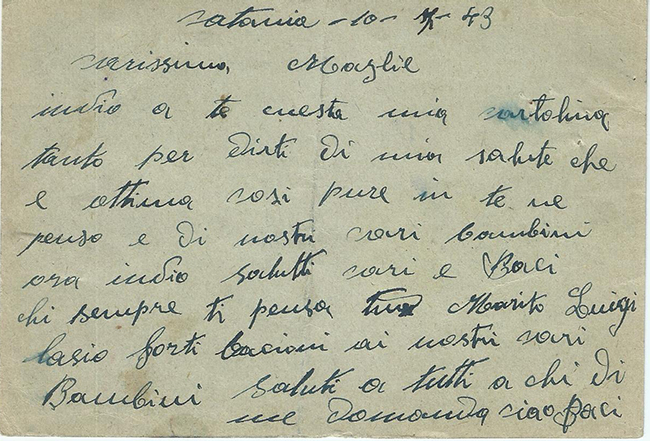 Catania - 10 - X - 43
Carissima Moglie
indio a te cuesta mia cartolina
tanto per dirti di mia salute che
e ottima cosi pure in te ne
penso e di nostri cari bambini
ora indio salutti cari e Baci
chi sempre ti pensa tuo Marito Luigi
lasio forti bacioni ai nostri cari
Bambini saluti a tutti a chi di
me domanda ciao Baci